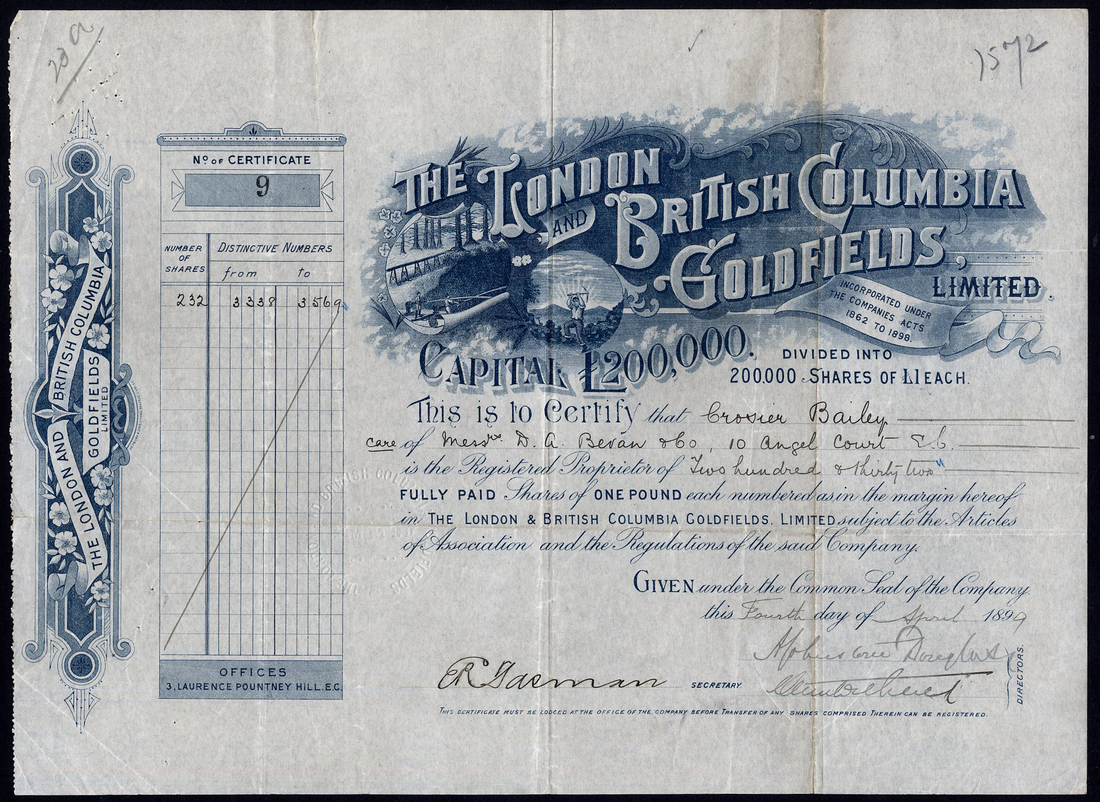 1572
Nº OF CERTIFICATE
9
NUMBER OF SHARES
DISTINCTIVE NUMBERS
from to
232 3338 3569
OFFICES
3, LAURENCE POUNTNEY HILL. E.C.
THE LONDON AND BRITISH COLUMBIA
GOLDFIELDS
LIMITED
THE LONDON
AND
BRITISH COLUMBIA
GOLDFIELDS,
LIMITED.
INCORPORATED UNDER
THE COMPANIES ACTS
1862 TO 1898.
CAPITAL £200,000.
DIVIDED INTO
200.000 SHARES OF £1 EACH.
This is to Certify that Crosier Bailey
care of Messrs D. A. Bevan & Co, 10 Angel Court E.C.
is the Registered Proprietor of Two hundred & thirty two
FULLY PAID Shares of ONE POUND each numbered as in the margin hereof
in THE LONDON & BRITISH COLUMBIA GOLDFIELDS, LIMITED subject to the Articles
of Association and the Regulations of the said Company.
GIVEN under the Common Seal of the Company
this Fourth day of April 1899
SECRETARY.
DIRECTORS.
THIS CERTIFICATE MUST BE LODGED AT THE OFFICE OF THE COMPANY BEFORE TRANSFER OF ANY SHARES COMPRISED THEREIN CAN BE REGISTERED.